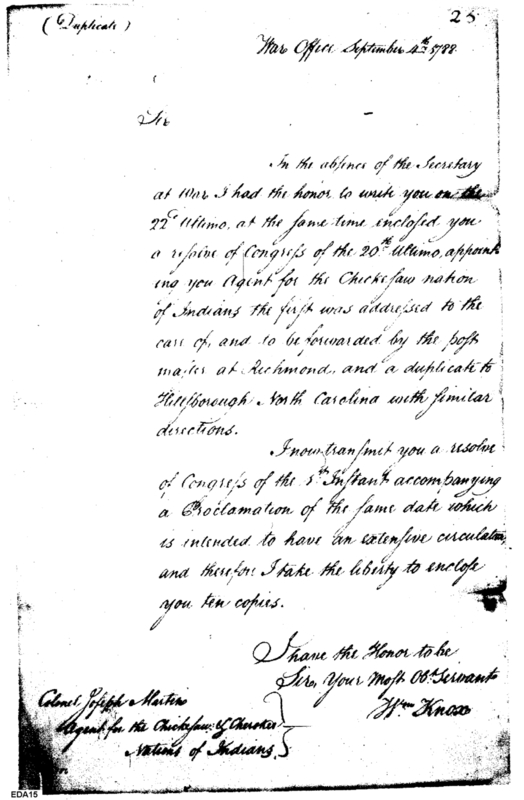 (Duplicate)
25
War Office September 4th 1788
Sir
In the absence of the Secretary
at War I had the honor to write you on the
22d Ultimo, at the same time enclosed you
a resolve of Congress of the 20th Ultimo, appoint
ing you Agent for the Chickesaw nation
of Indians the first was addressed to the
care of, and to be forwarded by the post
master at Richmond, and a duplicate to
Hillsborough North Carolina with similar
directions.
I now transmit you a resolve
of Congress of the 1st Instant accompanying
a Proclamation of the same date which
is intended to have an extensive circulation,
and therefore I take the liberty to enclose
you ten copies.
I have the Honor to be
Sir, Your Most Obt Servant
Wm Knox
Colonel Joseph Martin
Agent for the Chickesaw & Cherokee
Nations of Indians
EDA15